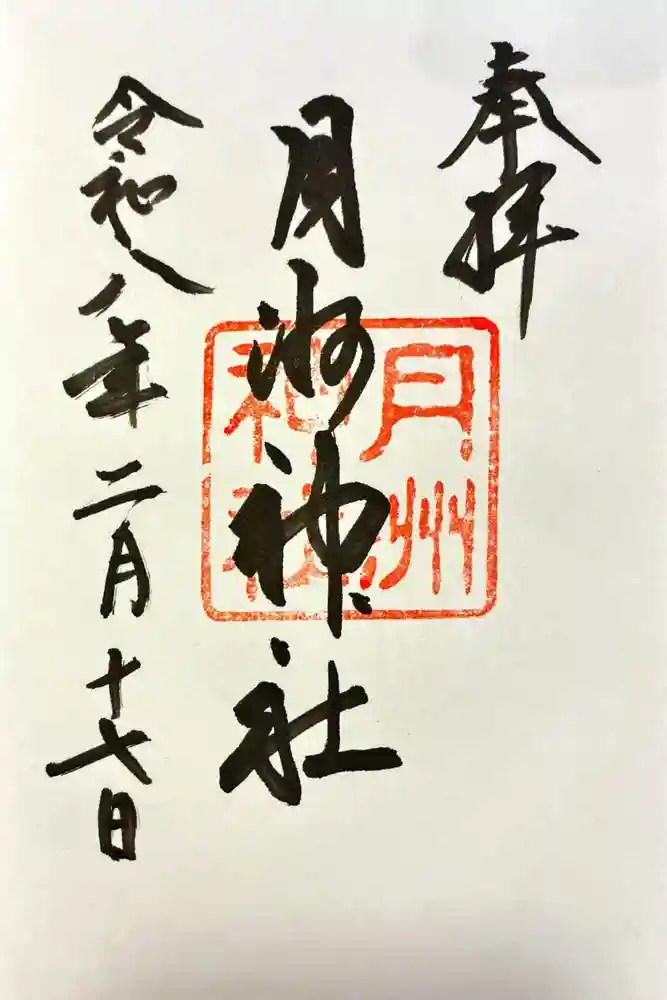 奉拝
月洲神社
月洲神社
令和八年二月十七日